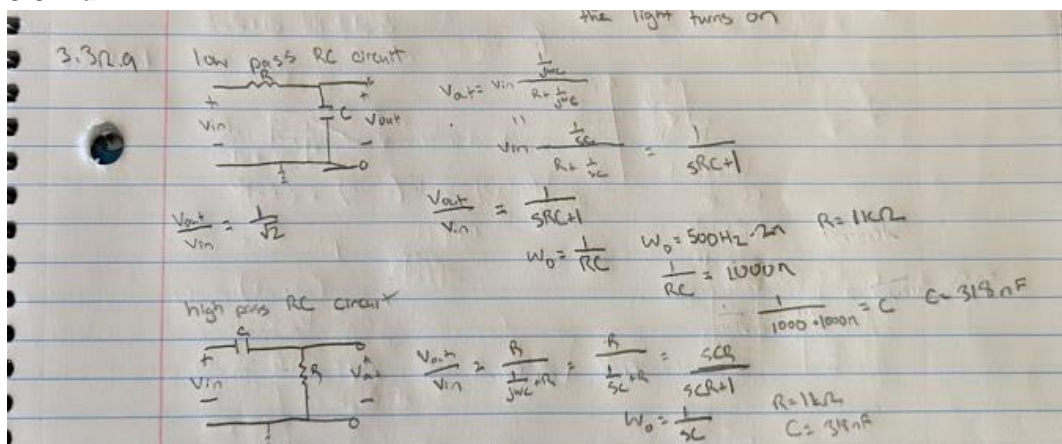 the light turns on
3.3n.a low pass RC circuit
R
+ Vin - C + Vout -
Vout = Vin \frac{\frac{1}{jwC}}{R + \frac{1}{jwC}}
"
Vin \frac{\frac{1}{sC}}{R + \frac{1}{sC}} = \frac{1}{sRC+1}
\frac{Vout}{Vin} = \frac{1}{\sqrt{2}} \frac{Vout}{Vin} = \frac{1}{sRC+1}
W₀ = \frac{1}{RC} W₀ = 500Hz · 2π R = 1kΩ
\frac{1}{RC} = 1000π
\frac{1}{1000 · 1000π} = C C = 318nF
high pass RC circuit
C
+ Vin - R + Vout -
\frac{Vout}{Vin} = \frac{R}{\frac{1}{jwC} + R} = \frac{R}{\frac{1}{sC} + R} = \frac{sCR}{sCR+1}
W₀ = \frac{1}{sC} R = 1kΩ
C = 318nF